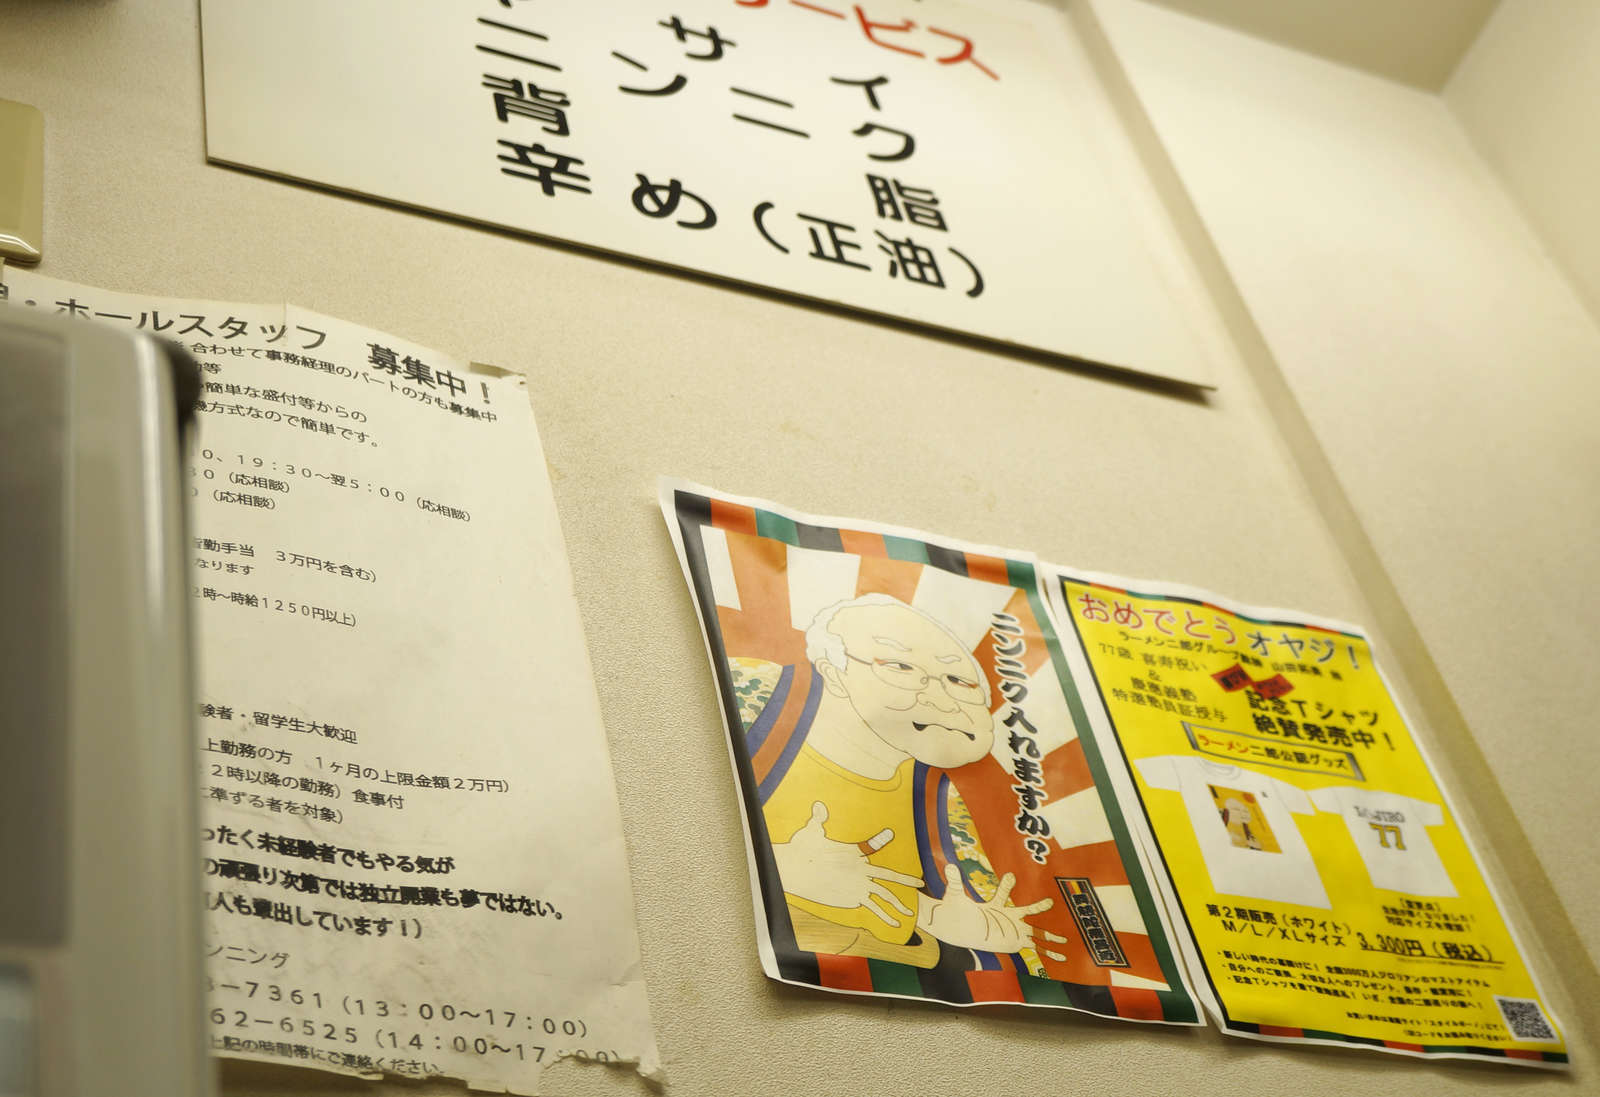 サービス
サイ
ニンニク
背脂
辛め(正油)
・ホールスタッフ 募集中！
合わせて事務経理のパートの方も募集中
等
簡単な盛付等からの
機方式なので簡単です。
０、１９：３０～翌５：００（応相談）
３０（応相談）
（応相談）
勤手当 ３万円を含む）
なります
２時～時給１２５０円以上）
験者・留学生大歓迎
上勤務の方 １ヶ月の上限金額２万円）
２時以降の勤務）食事付
に準ずる者を対象）
ったく未経験者でもやる気が
の頑張り次第では独立開業も夢ではない。
人も輩出しています！）
ンニング
３－７３６１（１３：００～１７：００）
６２－６５２５（１４：００～１７：００）
上記の時間帯にご連絡ください。
ニンニク入れますか？
おめでとうオヤジ！
ラーメン二郎グループ
77歳 喜寿祝い
&
慶應義塾
特選塾員証授与
記念Ｔシャツ
絶賛発売中！
ラーメン二郎公認グッズ
77
第２期販売（ホワイト）
Ｍ／Ｌ／ＸＬサイズ 3,300円（税込）